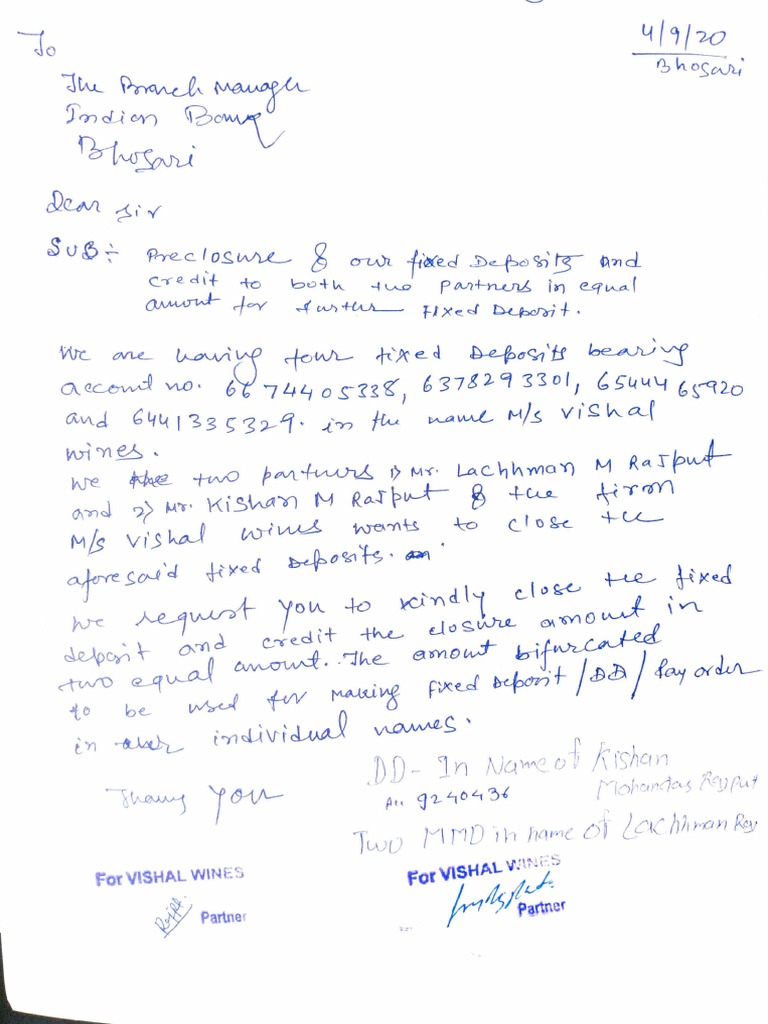 4/9/20
Bhosari
To
The Branch Manager
Indian Bank
Bhosari
Dear Sir
SUB:- Preclosure of our fixed Deposits and
credit to both two partners in equal
amount for further Fixed Deposit.
We are having four fixed Deposits bearing
account no. 6674405338, 6378293301, 6544465920
and 6441335329. in the name M/s Vishal
wines.
We the two partners 1) Mr. Lachhman M Rajput
and 2) Mr. Kishan M Rajput of the firm
M/s Vishal wines wants to close the
aforesaid fixed Deposits.
We request you to kindly close the fixed
deposit and credit the closure amount in
two equal amount. The amount bifurcated
to be used for making fixed Deposit / DD / Pay order
in individual names.
DD - In Name of Kishan
Mohandas Rajput
Thank you
9240436
Two MMD in name of Lachhman Raj
For VISHAL WINES
Partner
For VISHAL WINES
Partner